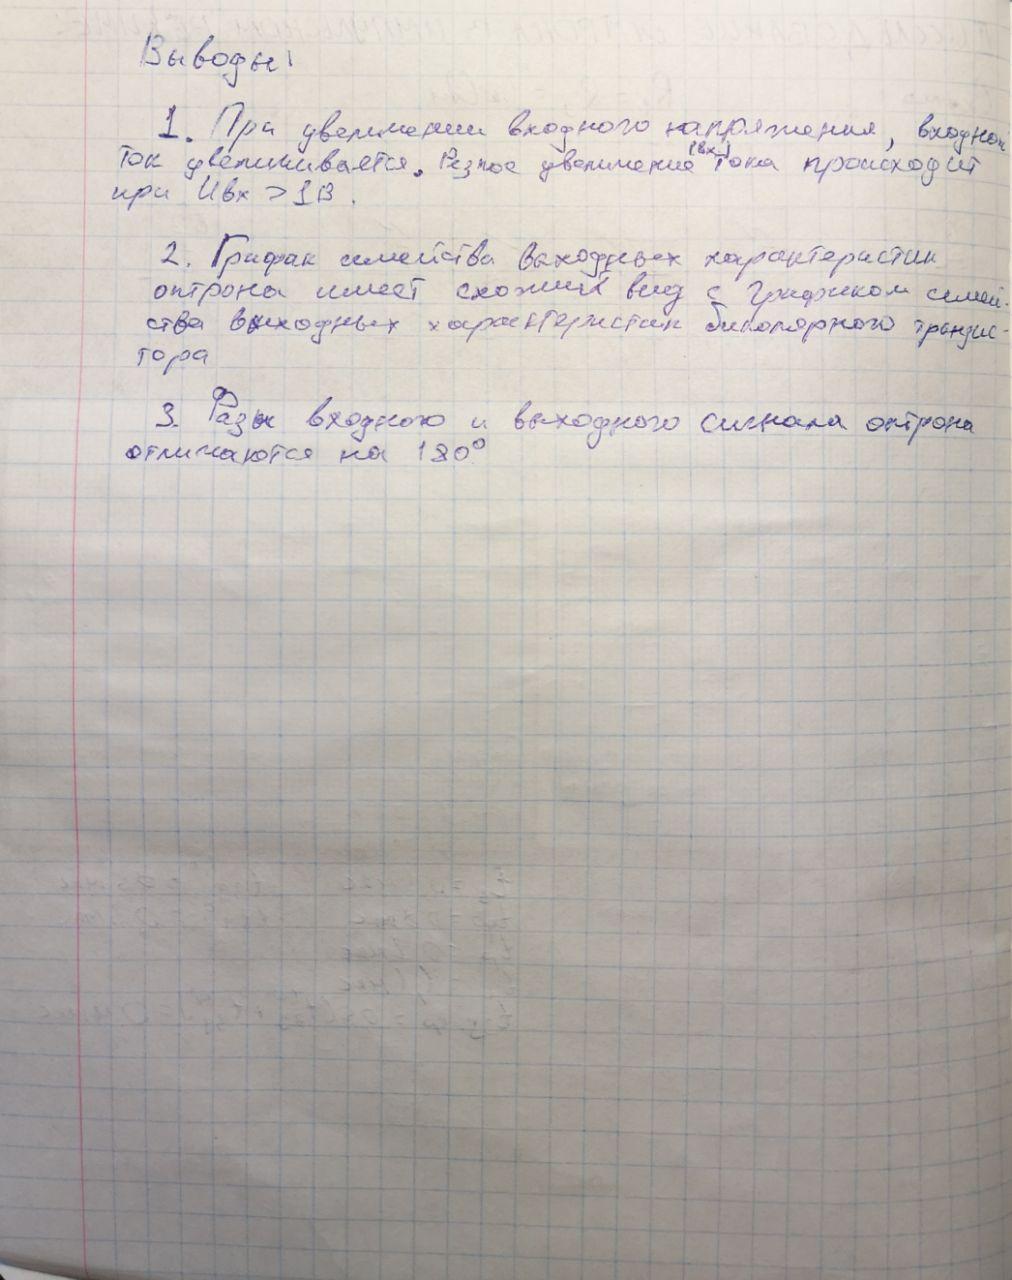 Выводы:
1. При увеличении входного напряжения, входной
ток увеличивается. Резкое увеличение (вх.) тока происходит
при Uвх > 1В.
2. График семейства выходных характеристик
оптрона имеет схожий вид с графиком семей-
ства выходных характеристик биполярного транзис-
тора
3. Фазы входного и выходного сигнала оптрона
отличаются на 180°